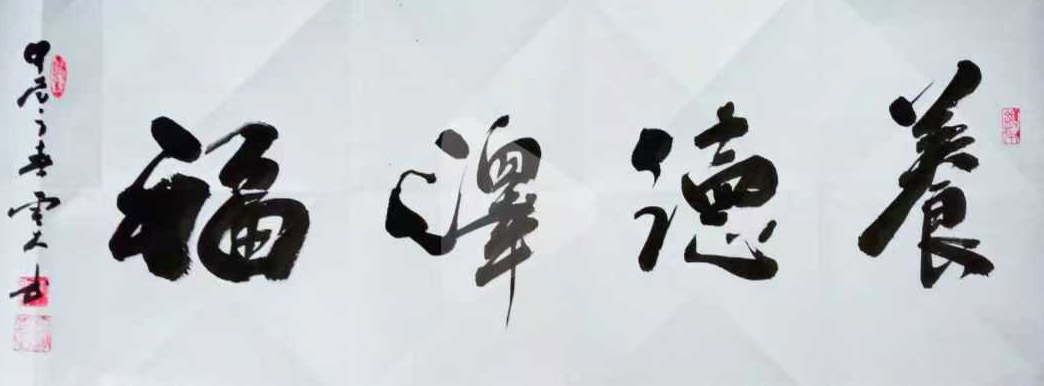 養德澤福
甲辰之春雲天书